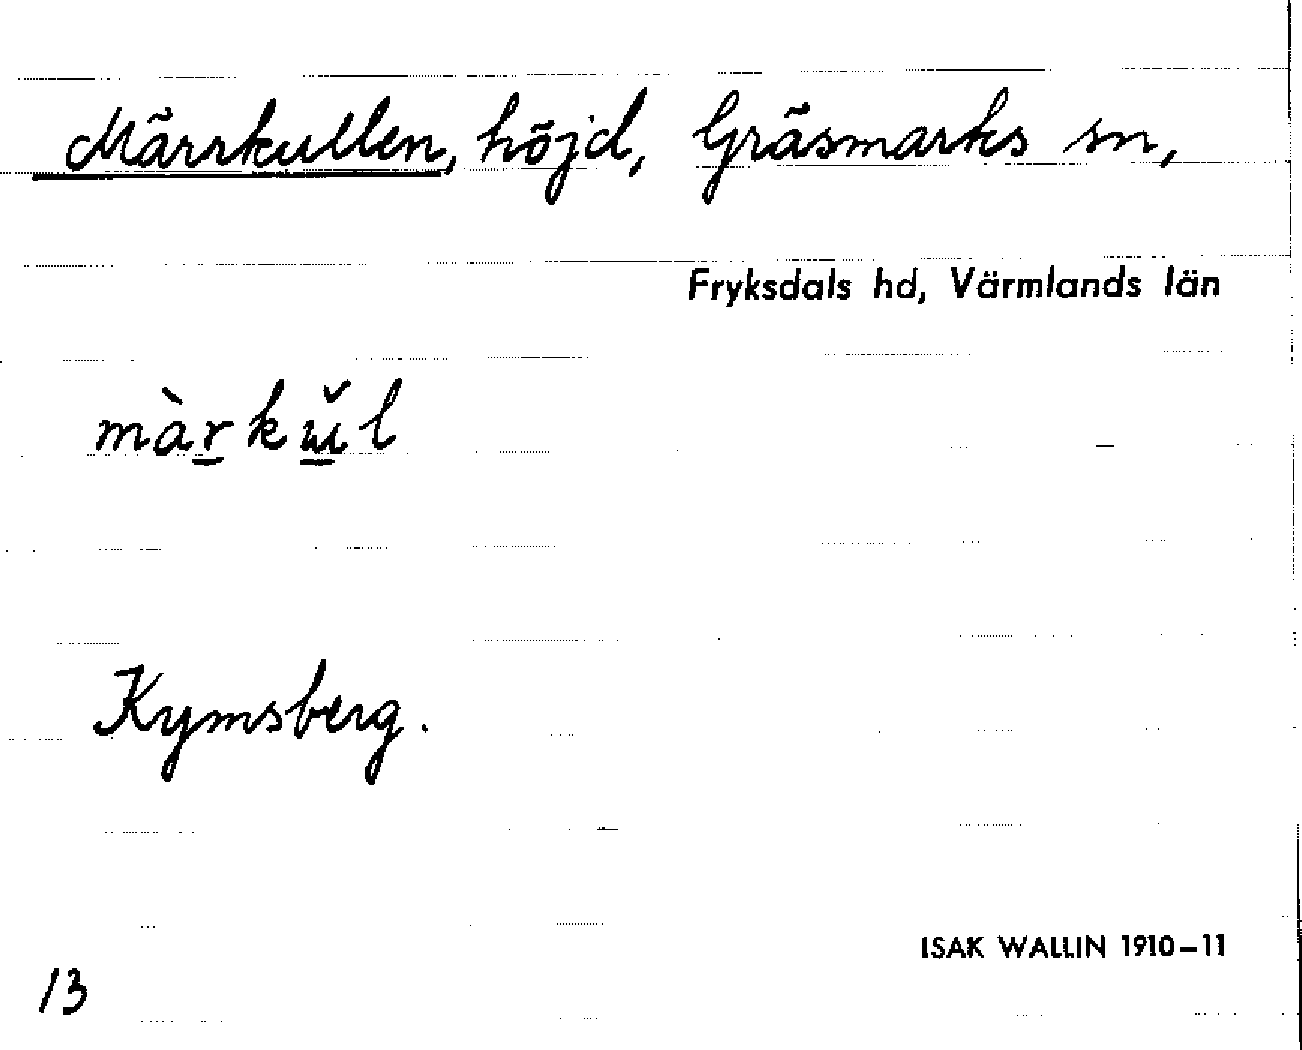 Märrkullen, höjd, Gräsmarks sn,
Fryksdals hd, Värmlands län
màr̲kŭ̲l
Kymsberg.
ISAK WALLIN 1910–11
13